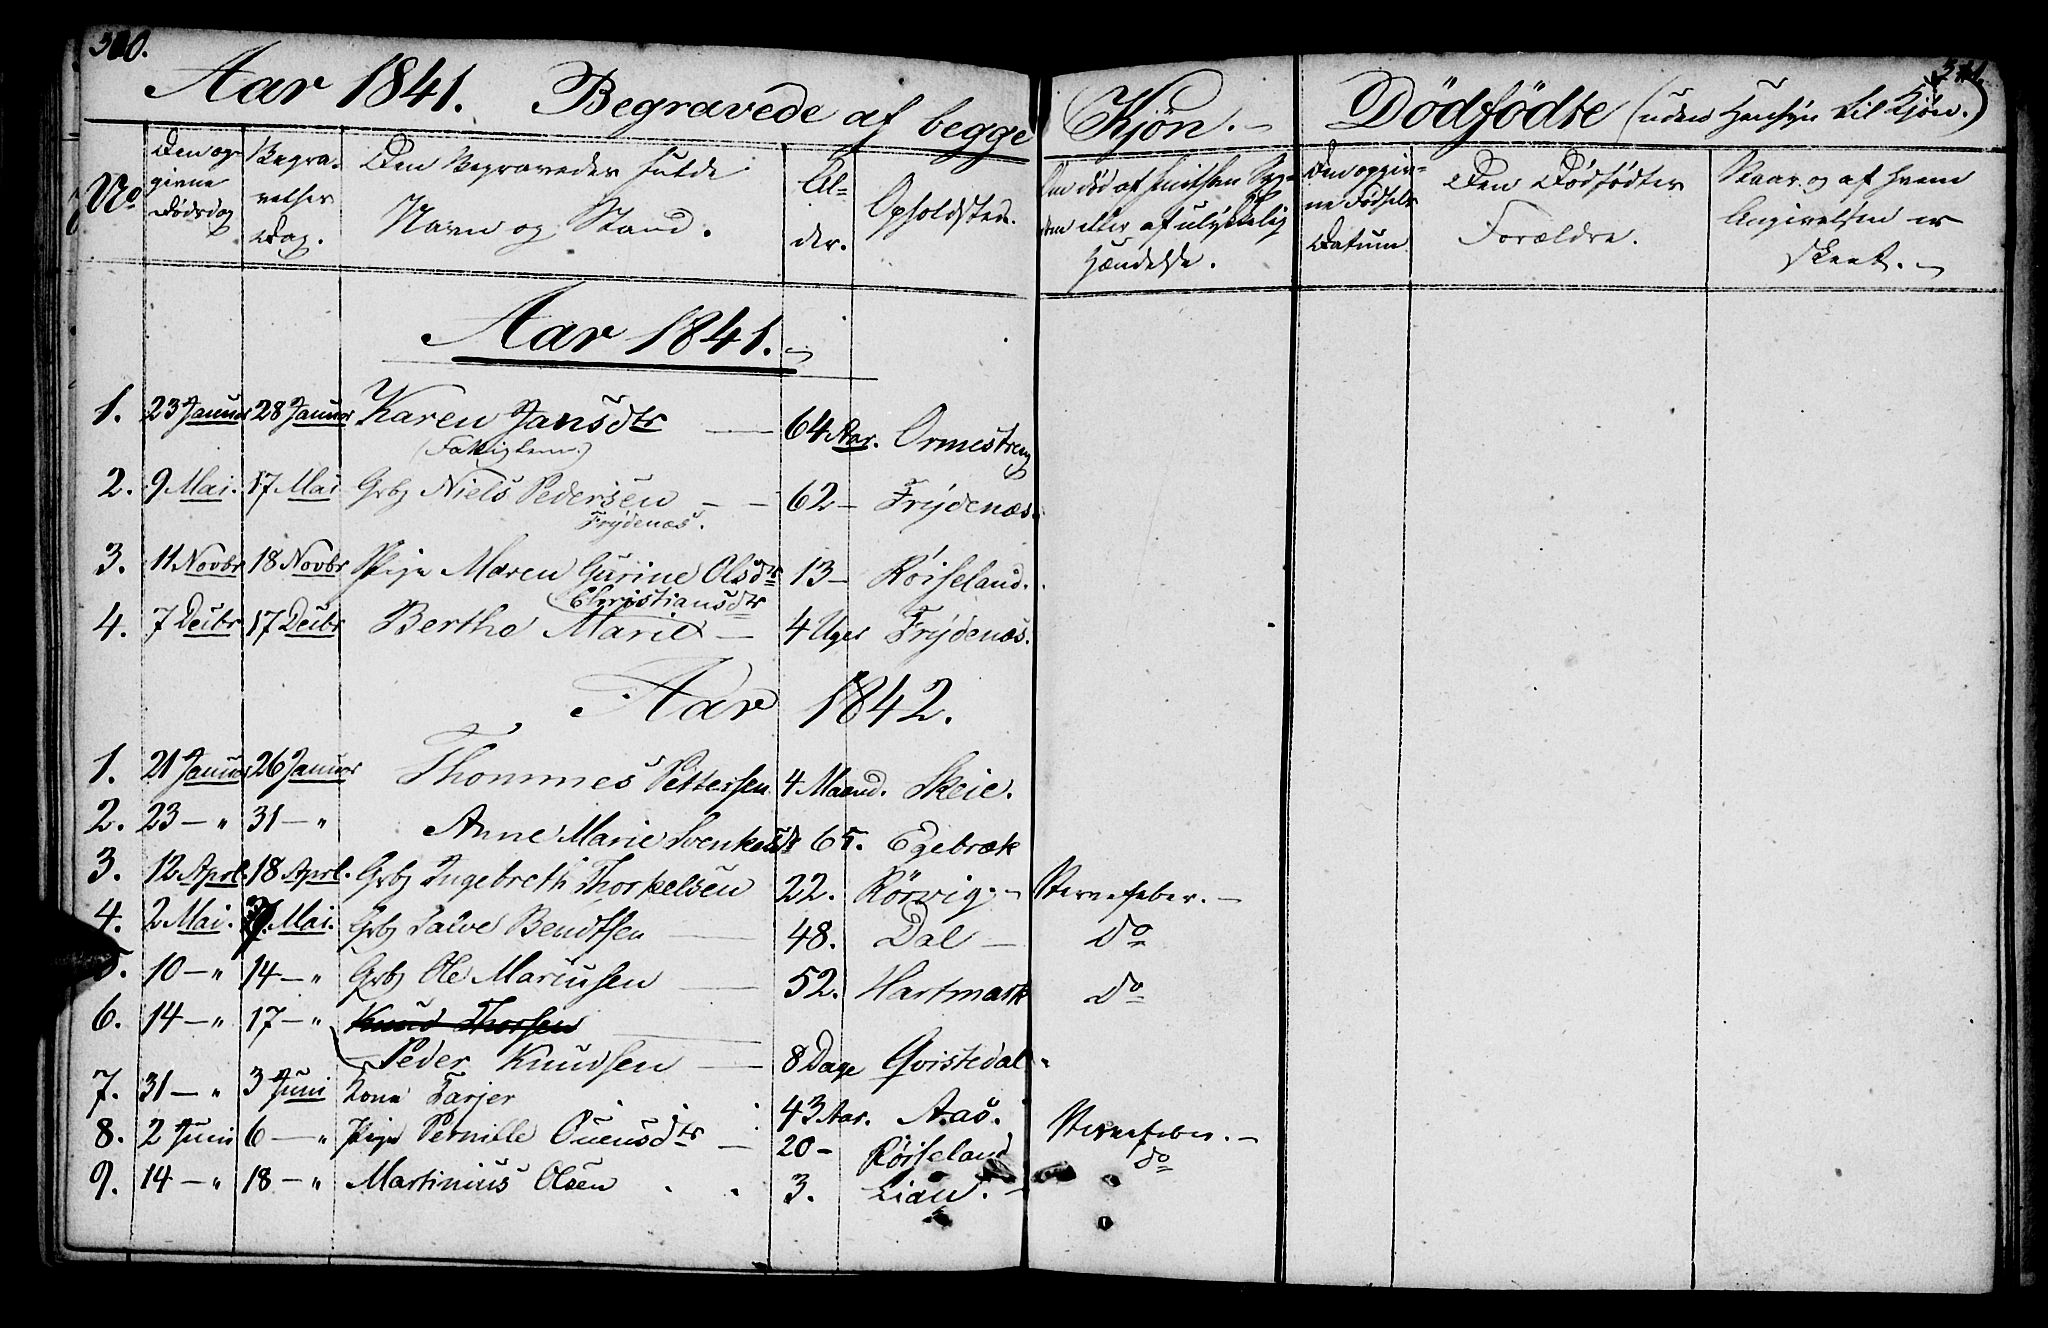 Aar 1841. Begravede af begge Kjøn. Dödfödte (uden Hensyn til Kjøn.)
No
Den op-
givne
Dødsdag
Begra-
velses
Dag.
Den Begravedes fulde
Navn og Stand.
Al-
der.
Opholdsted.
Hændelse.
Den opgiv-
ne Fødsels
Datum
Den Dødfødtes
Forældre.
Naar og af hvem
Angivelsen er
skeet.
Aar 1841.
1. 23 Januar 28 Januar Karen Jansdtr 64 Aar. Ormestreng
2. 9 Mai. 17 Mai Grbj Niels Pedersen 62 Frÿdenæs.
Frÿdenæs.
3. 11 Novbr 18 Novbr Pige Maren Gurine Olsdtr 13 Røiseland.
Christiansdtr
4. 7 Decbr 17 Decbr Berthe Marie 4 Uger Frÿdenæs.
Aar 1842.
1. 21 Januar 26 Januar Thommes Pettersen 4 Maand. Skeie.
2. 23 — " 31 — " Anne Marie 65. Egebræk
3. 12 Aprl. 18 Aprl. Grbj Ingebreth Thorkelsen 22. Rörvig. Nervefeber.
4. 2 Mai. Mai. Grbj Salve Bendtsen 48. Dal do
5. 10 — " 14 — " Grbj Ole Mariusen 52. Hartmark do
6. 14 — " 17 — " Knud Thorsen
Peder Knudsen 8 Dage Qvistedal
7. 31 — " 3 Juni Kone Tarjer 43 Aar. Aas.
8. 2 Juni 6 — " Pige Pernille Ouensdtr 20 Røiseland Nervefeber.
9. 14 — " 18 — " Martinius Olsen 3. Lian. do